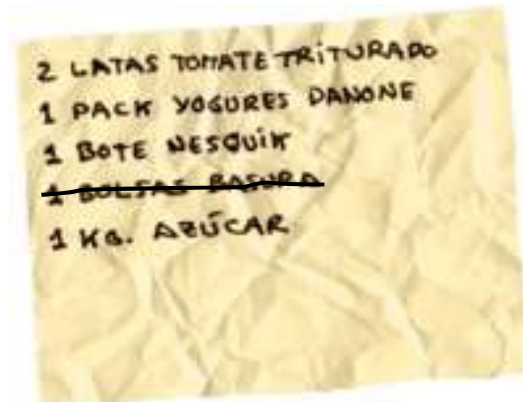 2 LATAS TOMATE TRITURADO
1 PACK YOGURES DANONE
1 BOTE NESQUIK
1 BOLSAS BASURA
1 KG. AZÚCAR